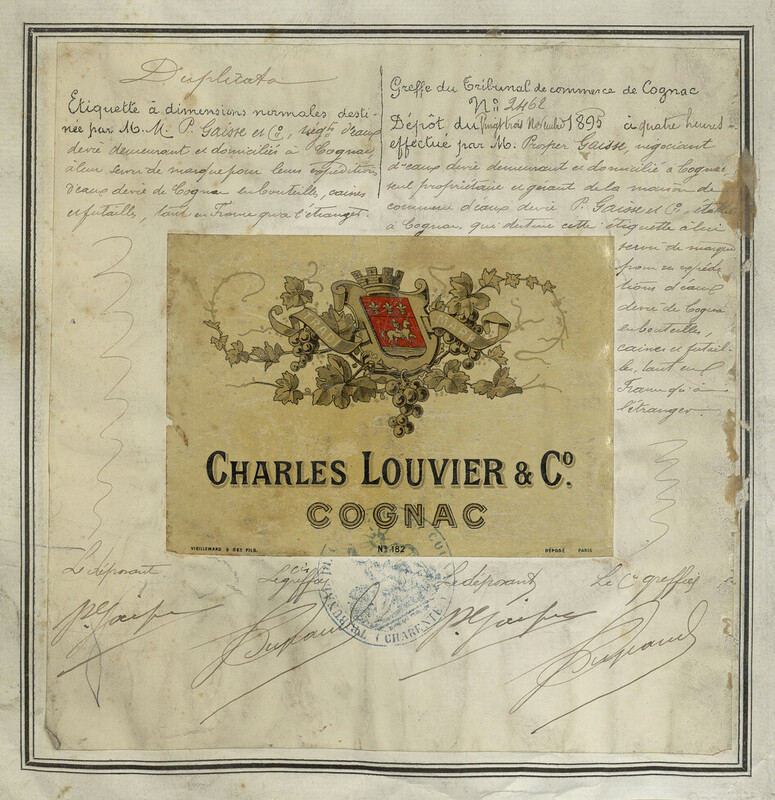 Duplicata
Etiquette à dimensions normales desti-
née par M. M. P. Gaisse et Co, négts d'eaux
devie demeurant et domiciliés à Cognac,
à leur servir de marque pour leurs expéditions
d'eaux devie de Cognac en bouteilles, caisses
et futailles, tant en France qu'à l'étranger.
Greffe du Tribunal de commerce de Cognac
No 2462
Dépôt, du vingt trois Novembre 1895 à quatre heures
effectué par M. Prosper Gaisse, négociant
d'eaux devie demeurant et domicilié à Cognac
seul propriétaire et gérant de la maison de
commerce d'eaux devie P. Gaisse et Co,
à Cognac, qui destine cette étiquette à lui
servir de marque
pour ses expédi
tions d'eaux
devie de Cognac
en bouteilles,
caisses et futail-
les, tant en
France qu'à
l'étranger.
CHARLES LOUVIER & Co.
COGNAC
VIEILLEMARD & SES FILS.
No 182
DÉPOSÉ PARIS
Le déposant
Le Cis greffier
Le déposant
Le Cis greffier
TRIBUNAL
(CHARENTE)